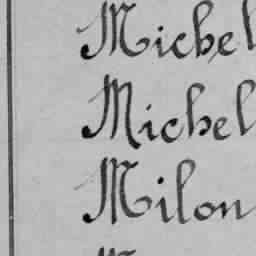 Michel
Michel
Milon